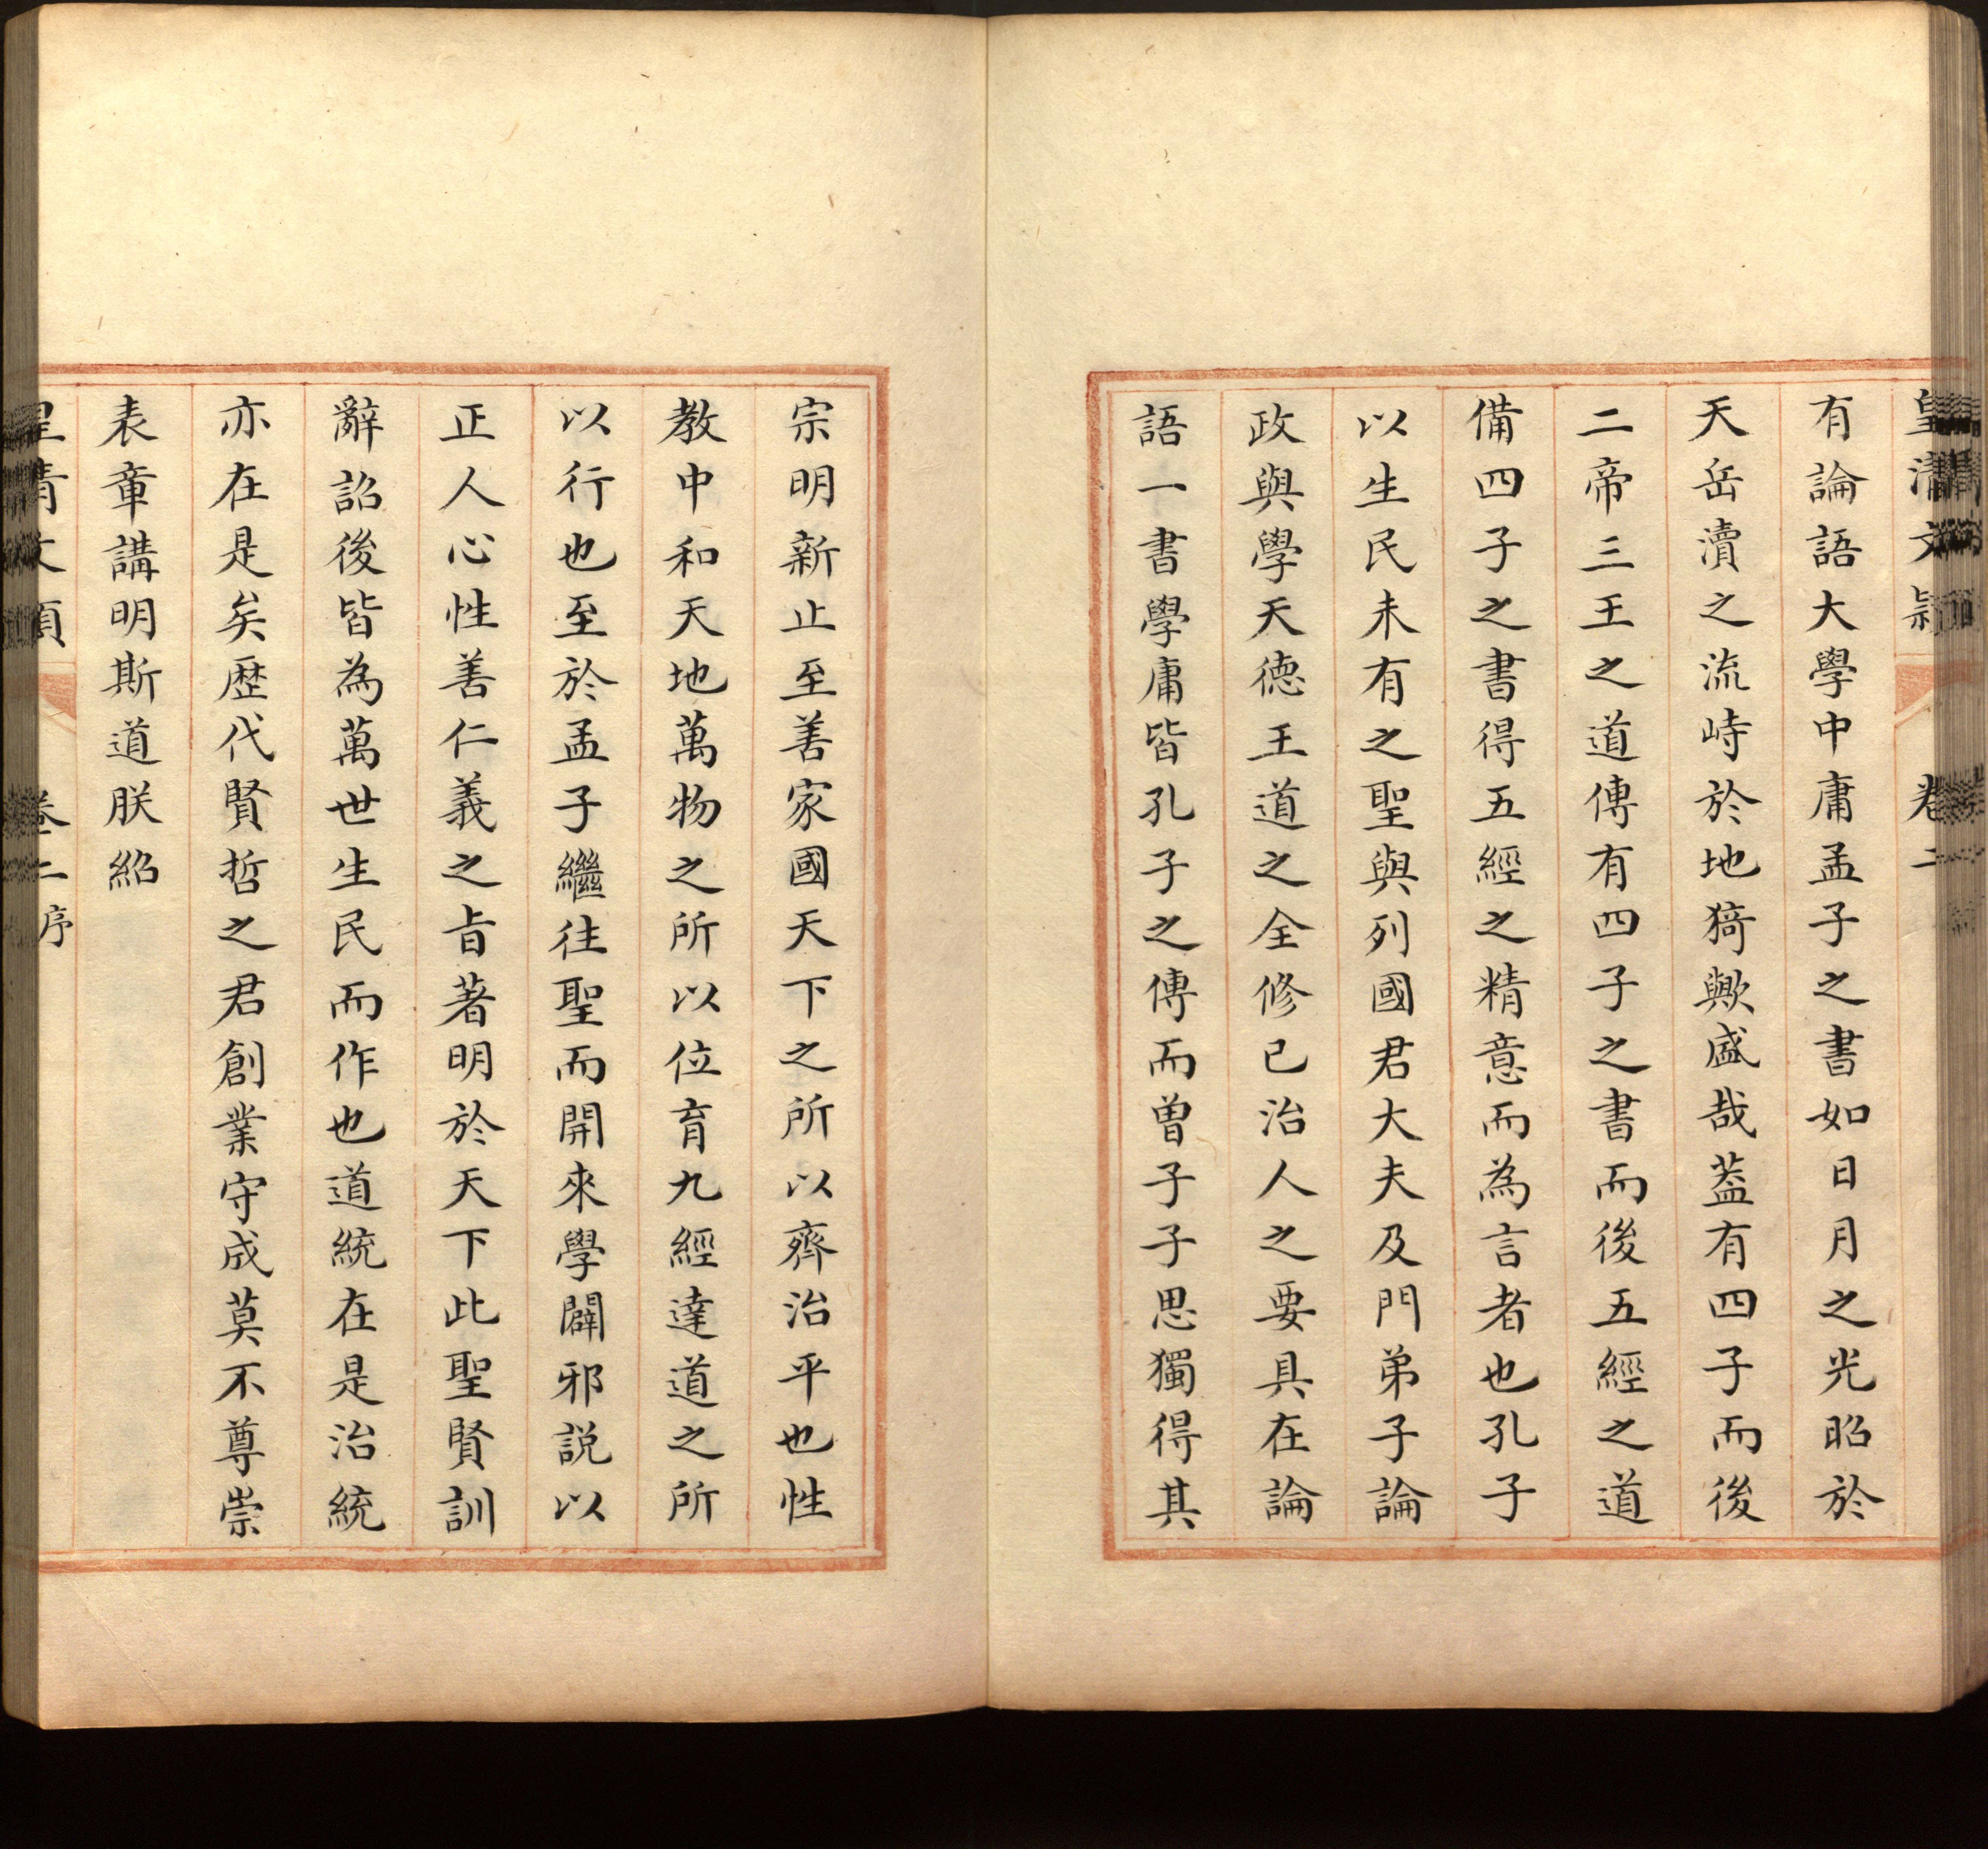 皇清文穎 卷二
有論語大學中庸孟子之書如日月之光昭於
天岳瀆之流峙於地猗歟盛哉葢有四子而後
二帝三王之道傳有四子之書而後五經之道
備四子之書得五經之精意而為言者也孔子
以生民未有之聖與列國君大夫及門弟子論
政與學天德王道之全修己治人之要具在論
語一書學庸皆孔子之傳而曾子子思獨得其
宗明新止至善家國天下之所以齊治平也性
教中和天地萬物之所以位育九經達道之所
以行也至於孟子繼往聖而開來學闢邪說以
正人心性善仁義之旨著明於天下此聖賢訓
辭詔後皆為萬世生民而作也道統在是治統
亦在是矣歷代賢哲之君創業守成莫不尊崇
表章講明斯道朕紹
皇清文穎 卷二序